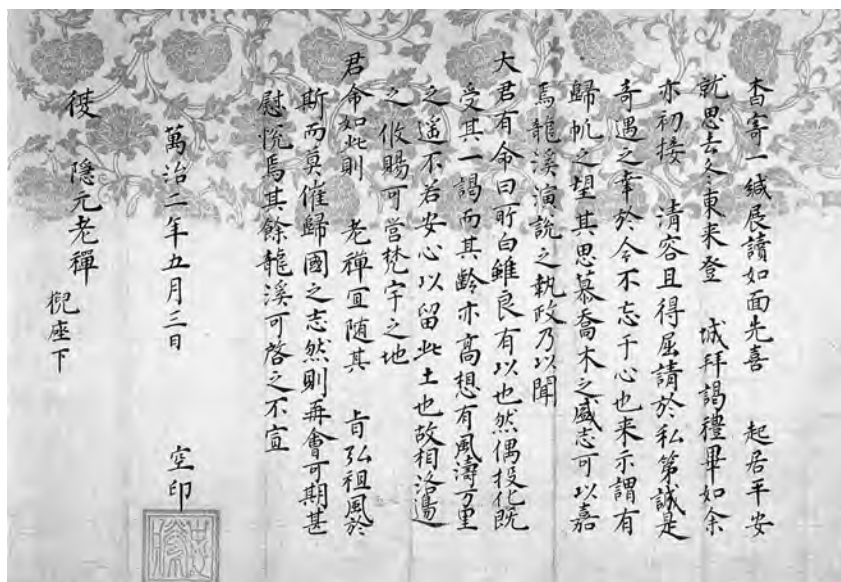 杳寄一緘展讀如面先喜 起居平安
就思去冬東来登 城拜謁禮畢如余
亦初接 清容且得屈請於私第誠是
奇遇之幸於今不忘于心也来示謂有
歸帆之望其思慕喬木之盛志可以嘉
焉龍溪演說之執政乃以聞
大君有命曰所白雖良有以也然偶投化既
受其一謁而其齡亦高想有風濤万里
之遥不若安心以留此土也故相洛邊
之攸賜可營梵宇之地
君命如此則 老禪宜随其 旨弘祖風於
斯而莫催歸國之志然則再會可期甚
慰悦焉其餘龍溪可啓之不宣
萬治二年五月三日 空印
復 隠元老禪
猊座下